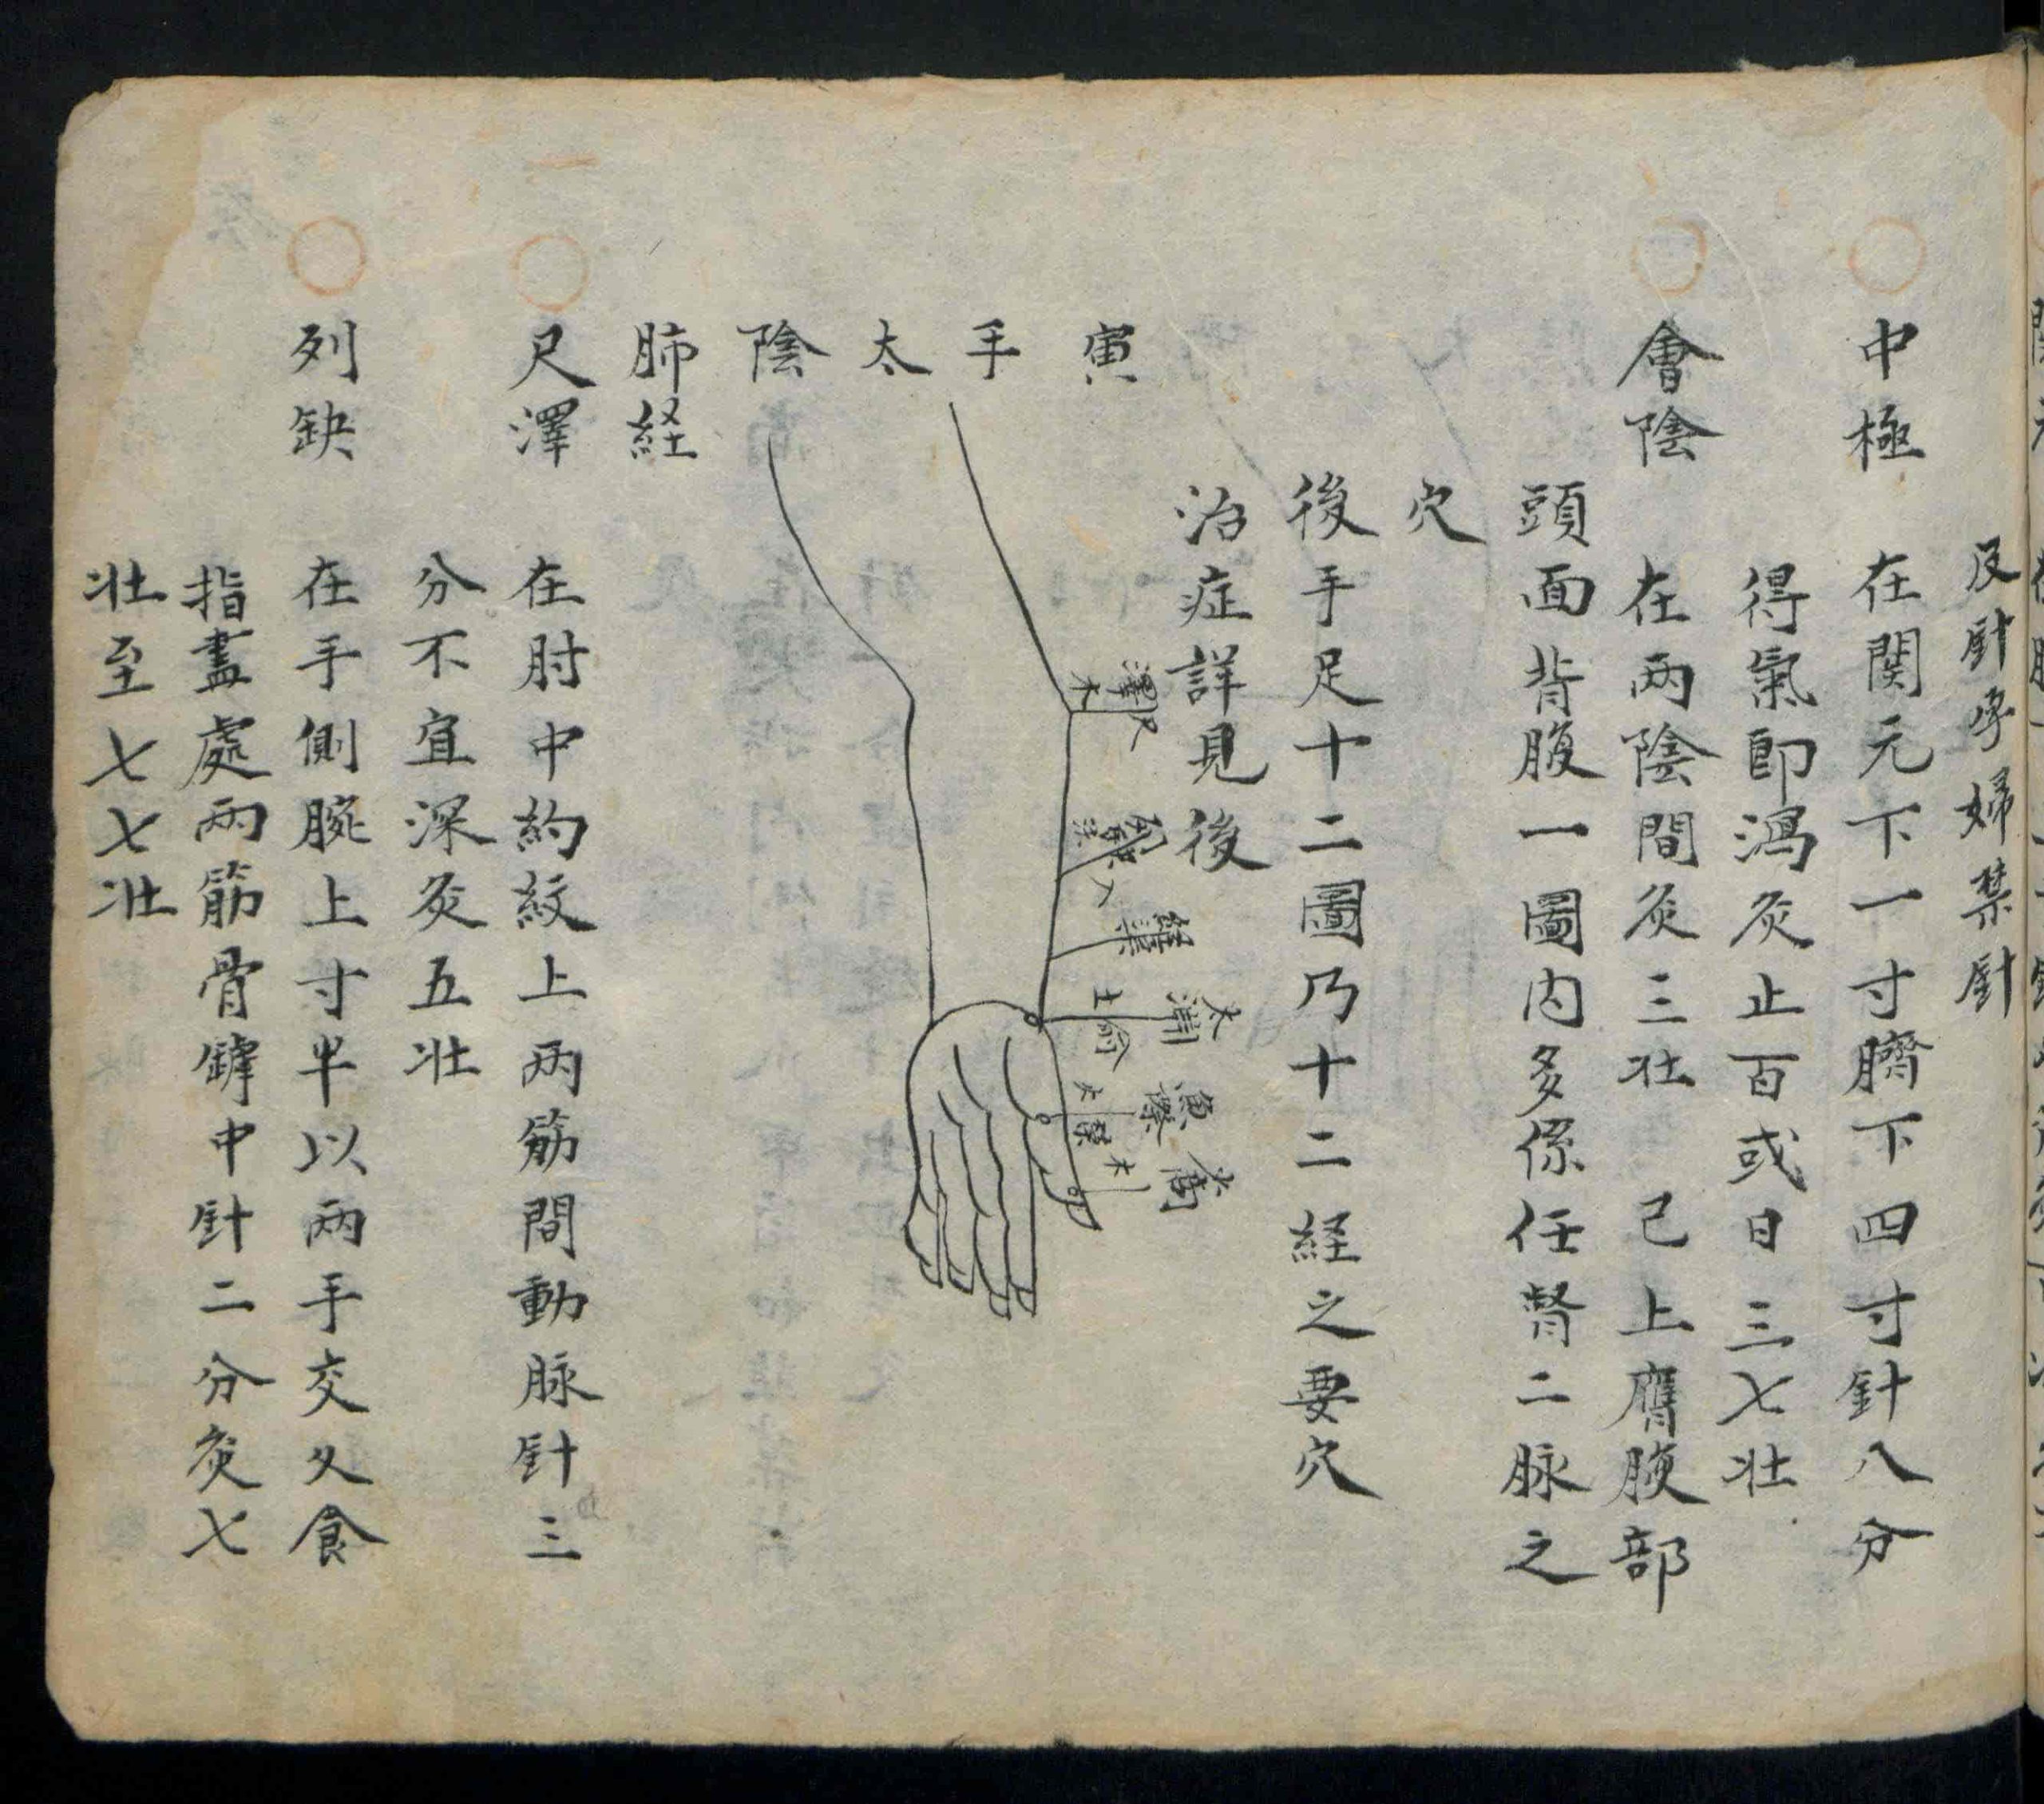 及針孕婦禁針
中極 在関元下一寸臍下四寸針八分
得氣即瀉灸止百或日三七壮
會陰 在兩陰間灸三壮 已上膺腹部
頭面背腹一圖内多係任督二脉之
穴
後手足十二圖乃十二経之要穴
治症詳見後
寅手太陰肺経
尺澤
列缺
経渠
太淵
土俞
魚際
火荣
木
尺澤 在肘中約紋上兩筋間動脉針三
分不宜深灸五壮
列缺 在手側腕上寸半以兩手交叉食
指盡處兩筋骨罅中針二分灸七
壮至七七壮